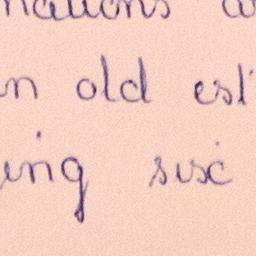 nations
n old est
ing sisc